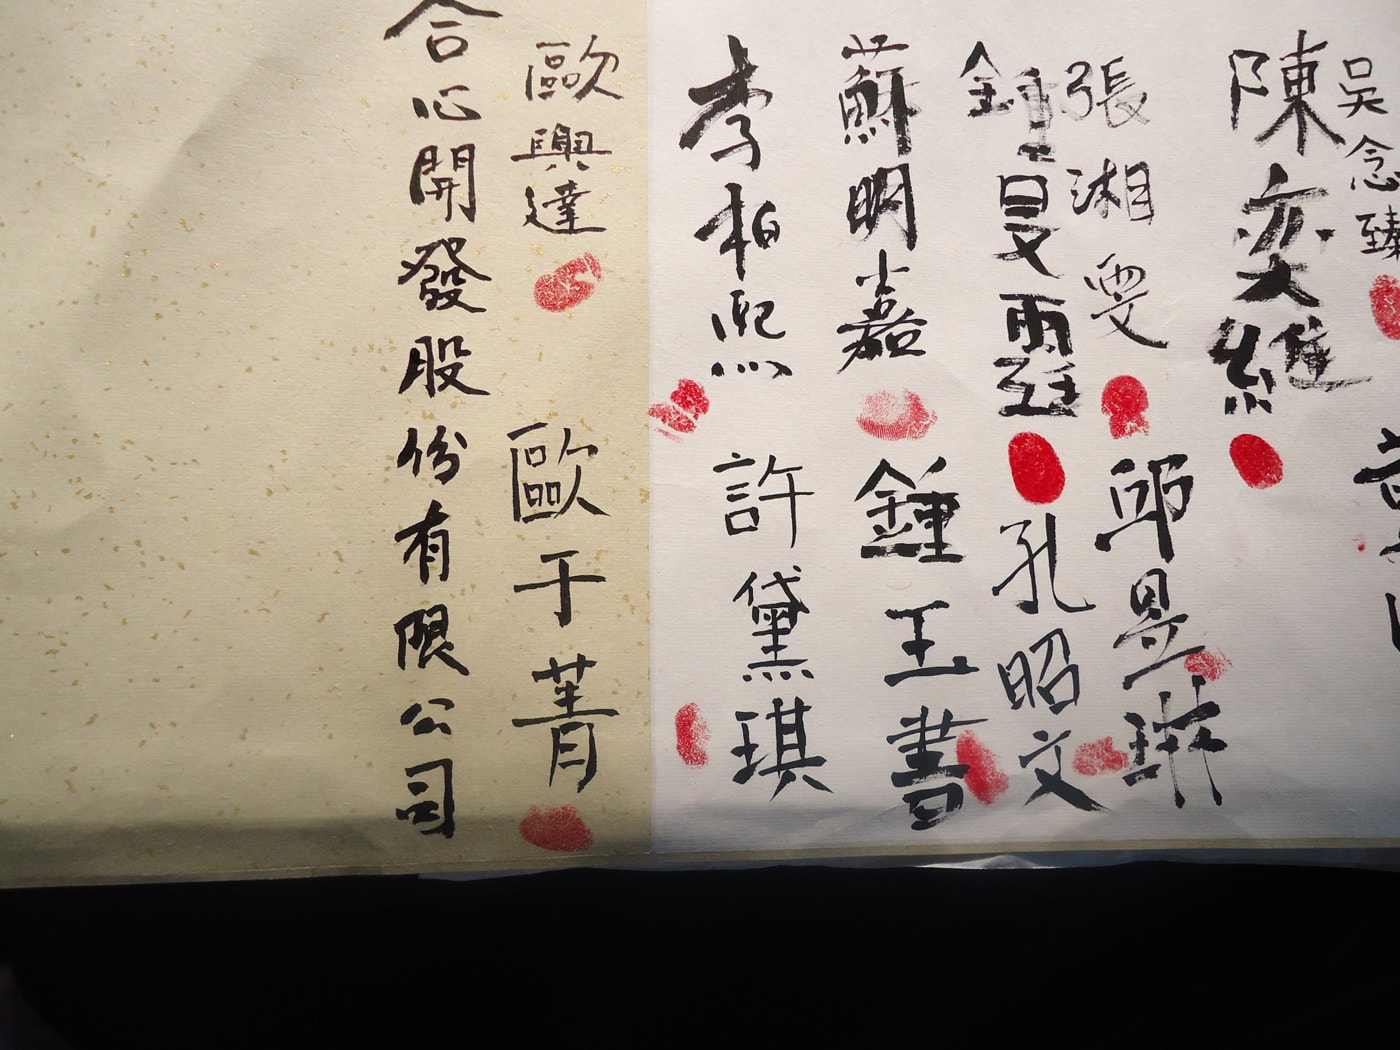 吳念臻
陳奕維
張湘雯
邱昱琳
鍾旻霏
孔昭文
蘇明嘉
鍾玉書
李柏熙
許黛琪
歐興達
歐于菁
合心開發股份有限公司